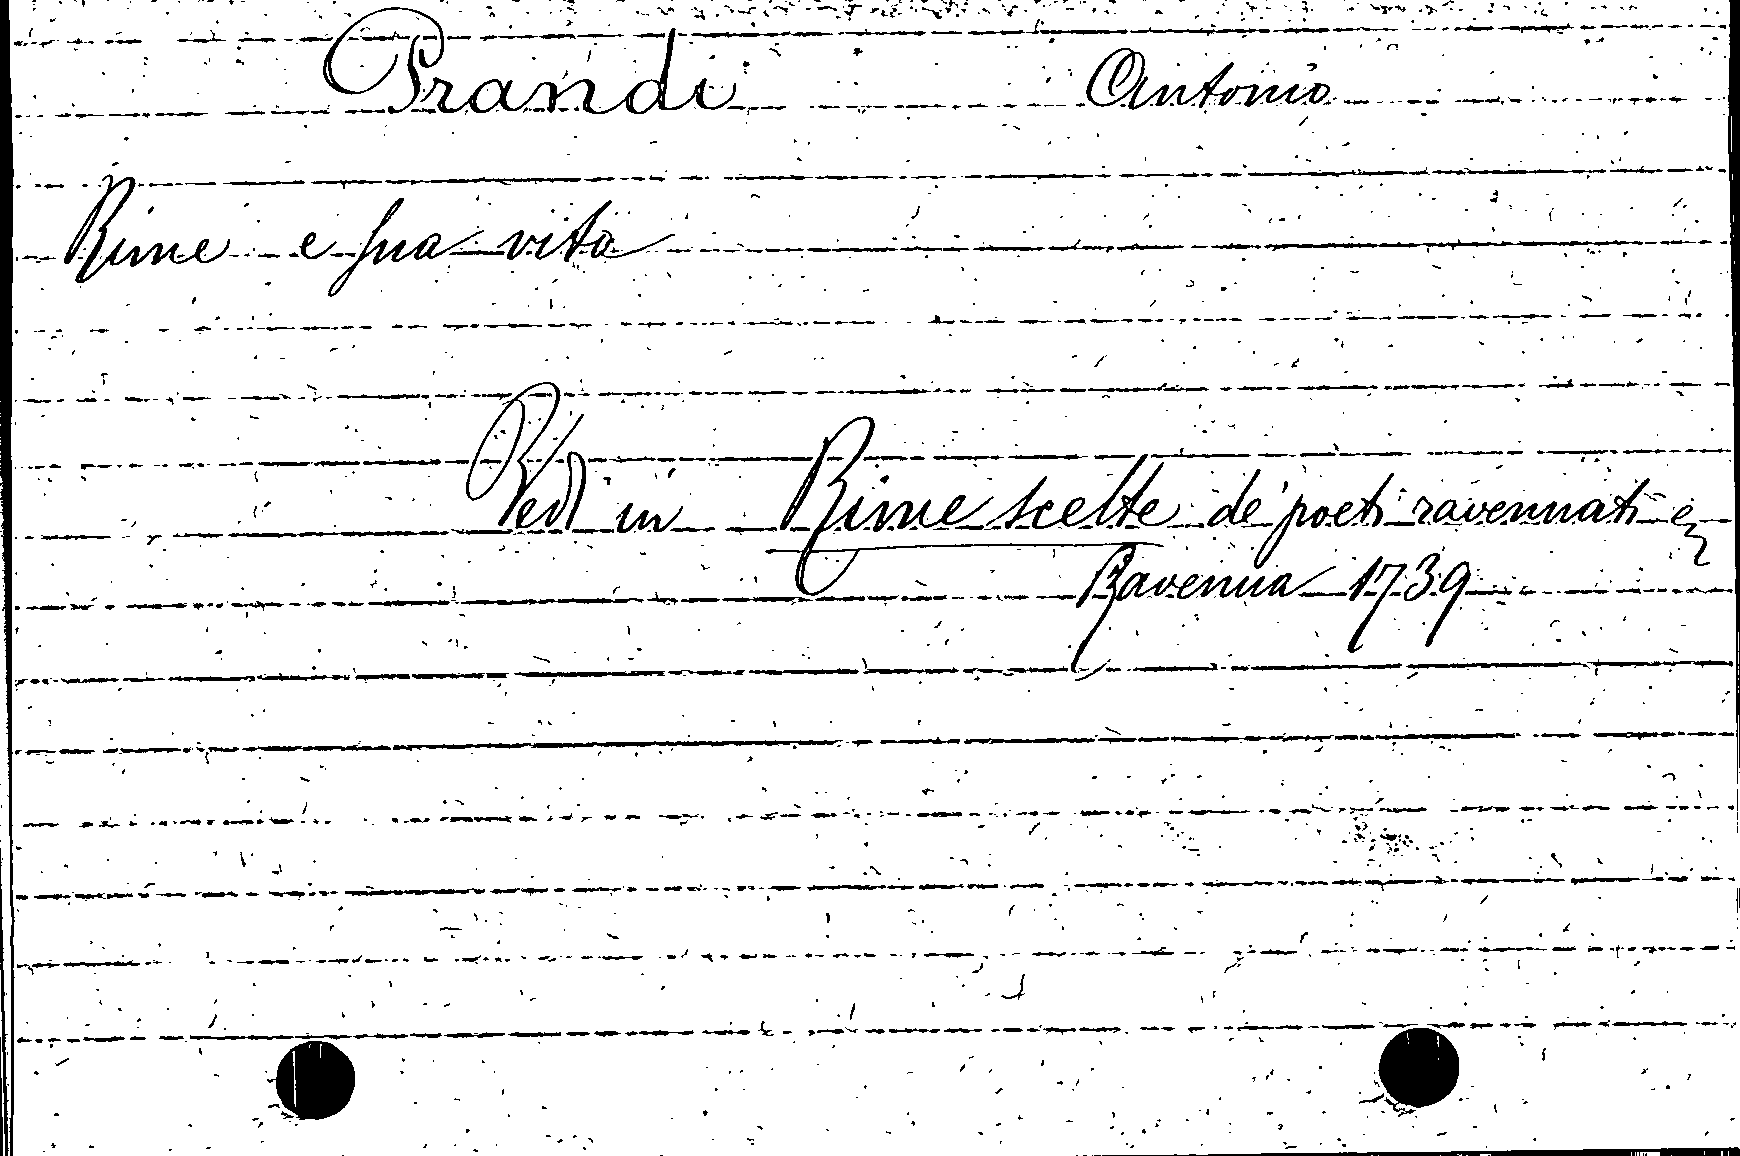 Prandi Antonio
Rime e sua vita
Vedi in Rime scelte de' poeti ravennati
Ravenna 1739